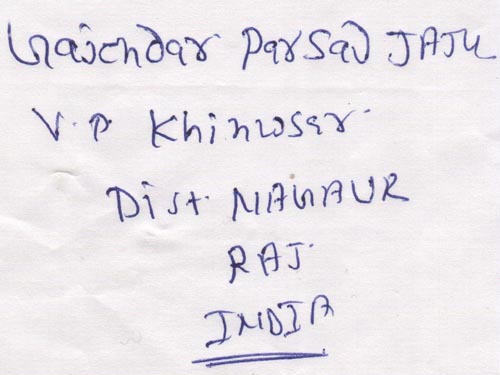 Gajendar Parsad JAJU
V. P. Khinwsar
Dist. NAGAUR
RAJ.
INDIA